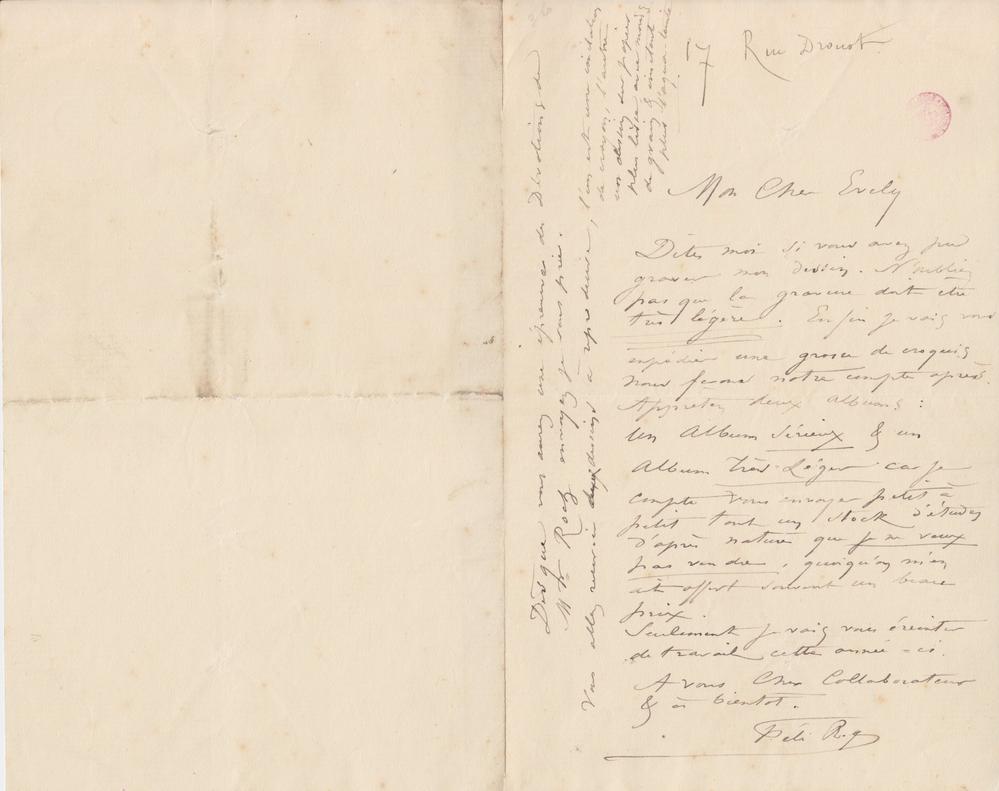 7 Rue Drouot
Mon Cher Evely
Dites moi si vous avez pu
graver mon dessin. N'oubliez
pas que la gravure doit être
très légère. Enfin je vais vous
expédier une grosse de croquis
nous ferons notre compte après.
Appretez deux Albums :
Un Album Sérieux & un
Album très Léger car je
compte vous envoyer petit à
petit tout un stock d'études
d'après nature que je ne veux
pas vendre, quoiqu'on m'en
ait offert souvent un beau
prix.
Seulement je vais vous éreinter
de travail cette année-ci.
A vous Cher Collaborateur
& à bientot.
Féli R.
Dès que vous aurez une épreuve du
Mr envoyez je vous prie.
Vous allez recevoir dessins à reproduire, l'un est une imitation
de crayon, l'autre
un dessin sur papier
plus lisse avec moins
de grain &
plus